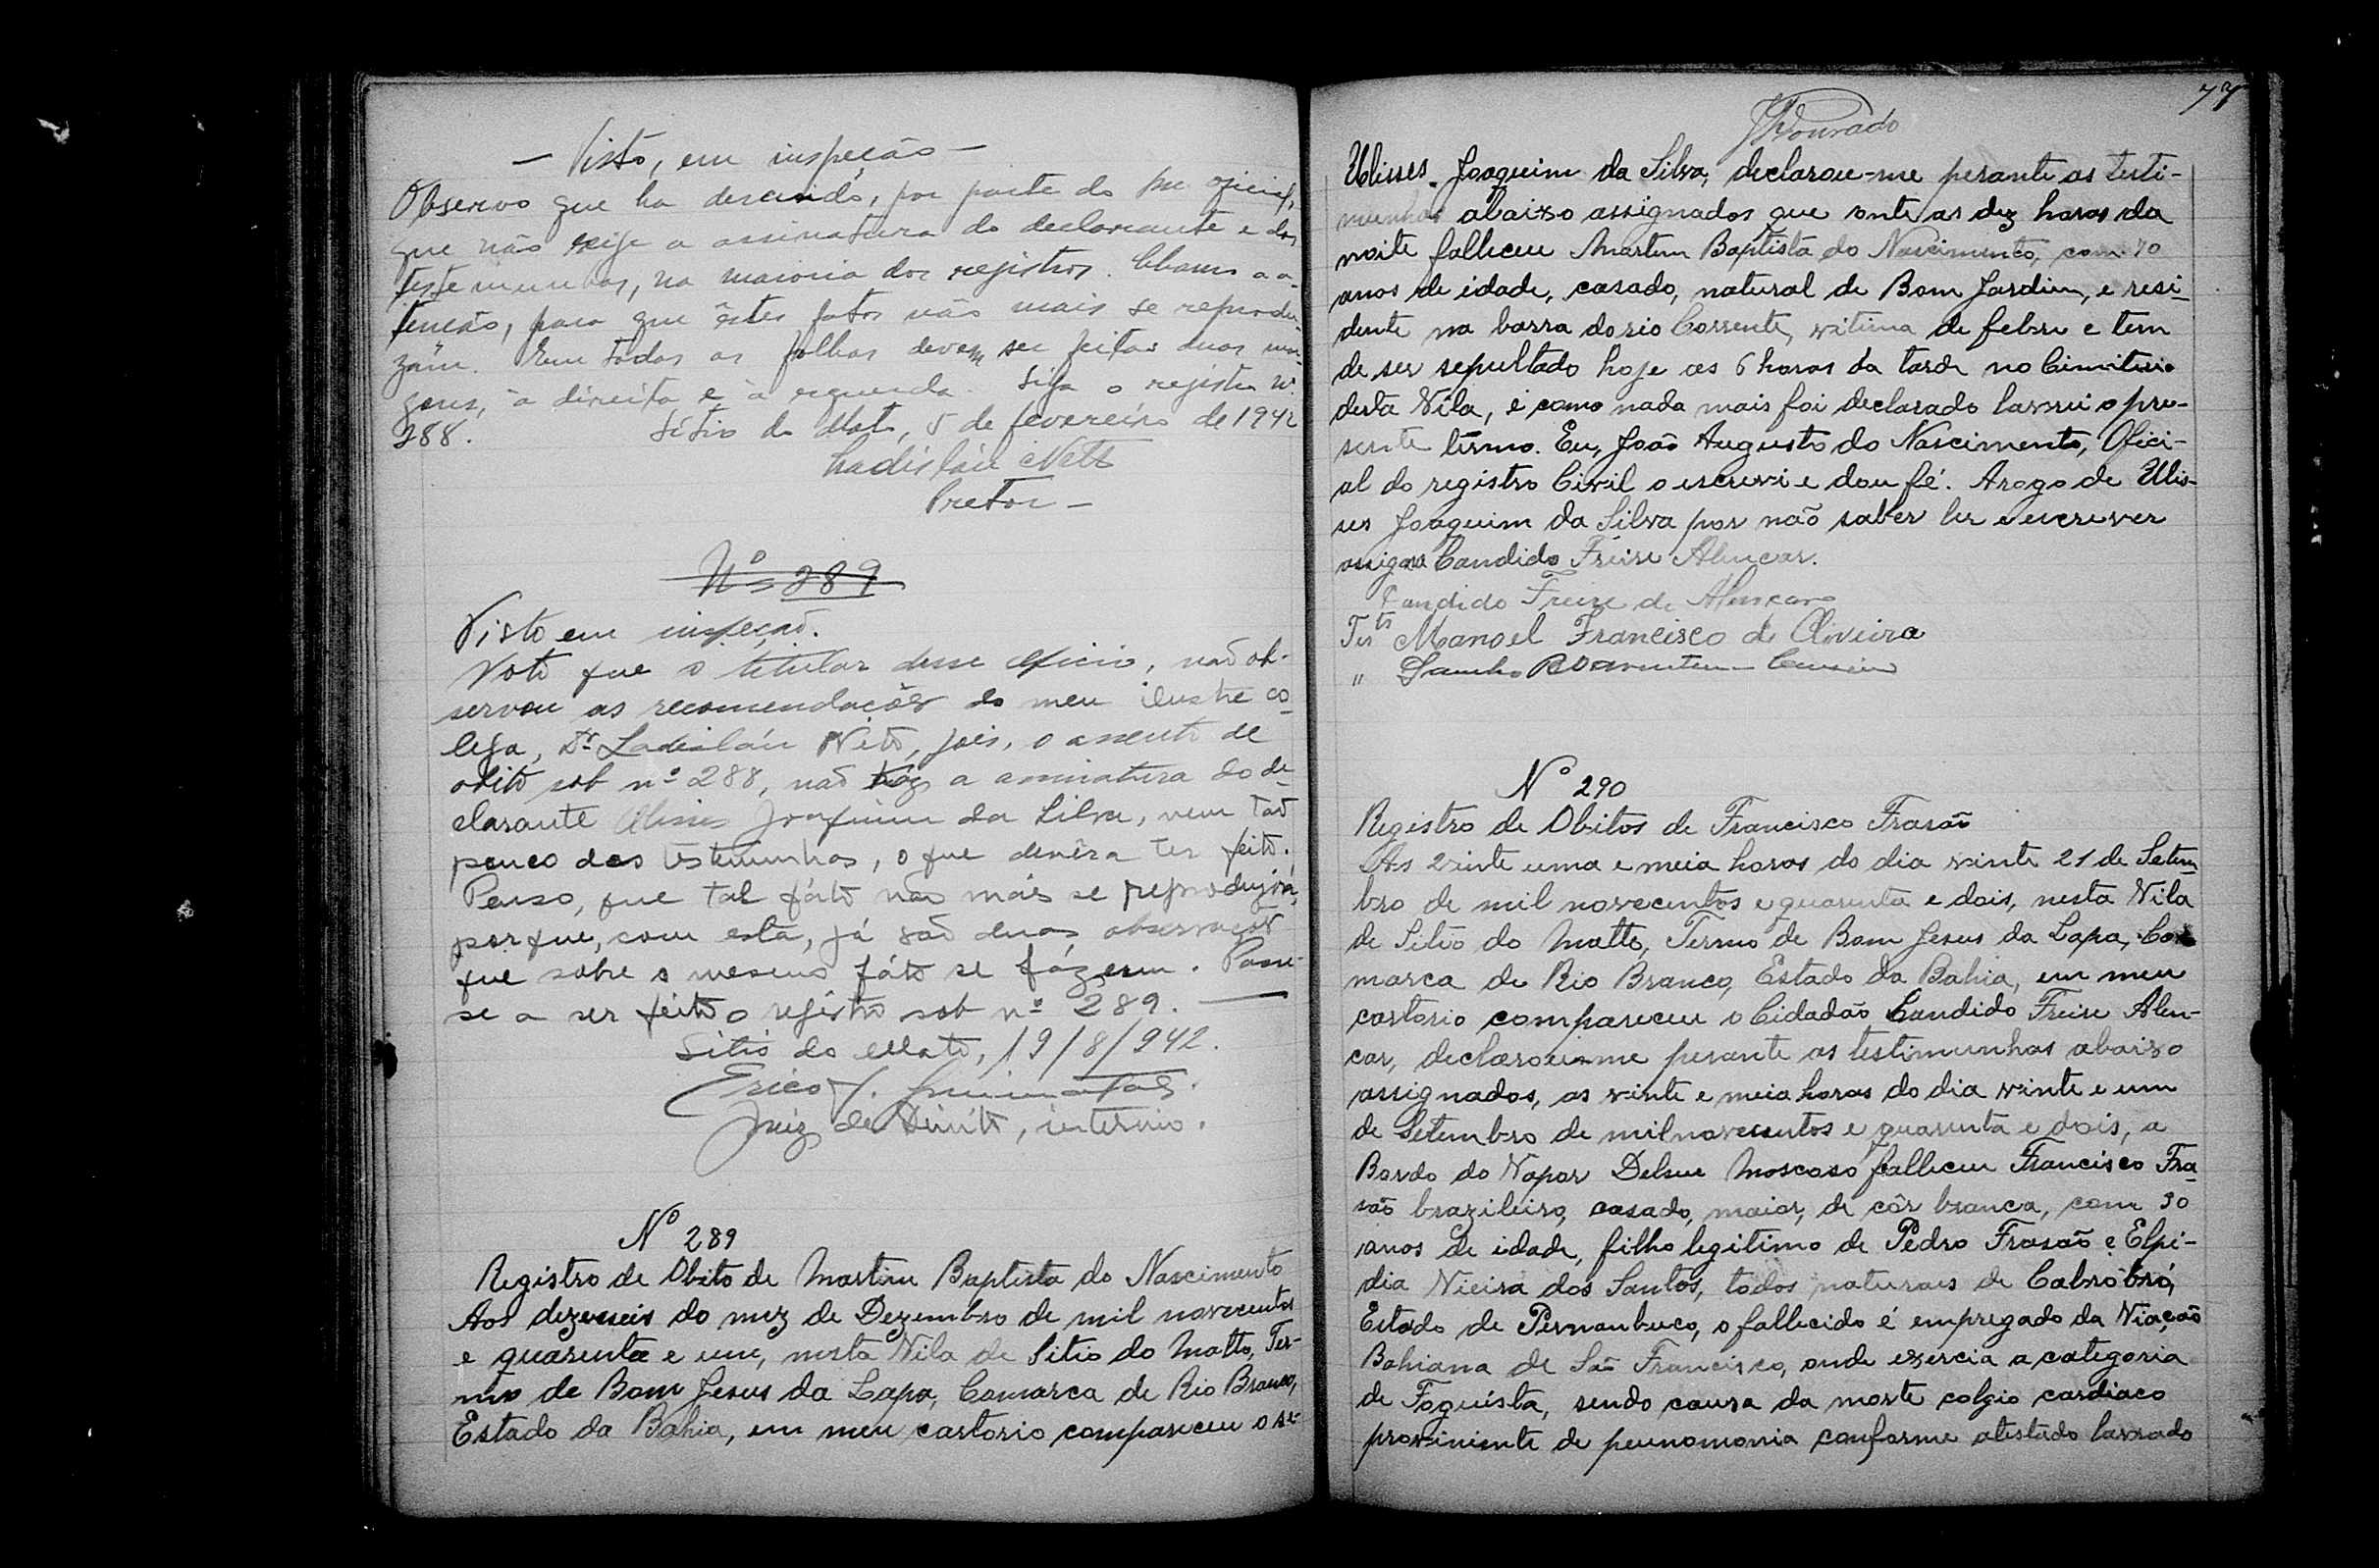 — Visto, em inspeção —
Observo que ha descuido, por parte do snr oficial,
que não exije a assinatura do declarante e das
testemunhas, na maioria dos registros. Chamo a a-
tenção, para que êstes fatos não mais se reprodu-
zam. Em todas as folhas devem ser feitas duas mar-
gens, à direita e à esquerda. Siga o registro nº
288. Sítio do Mato, 5 de fevereiro de 1942
Ladisláu Netto
Pretor —
Nº 289
Visto em inspeçaõ.
Noto que o titular desse oficio, naõ ob-
servou as recomendações do meu ilustre co-
lega, Dr. Ladisláu Neto, pois, o assento de
obito sob nº 288, naõ traz a assinatura do de-
clarante Ulisses Joaquim da Silva, nem taõ
pouco das testemunhas, o que devêra ter feito.
Penso, que tal fáto naõ mais se reproduzirá,
porque, com esta, já saõ duas observações
que sobre o mesmo fáto se fázem. Passe-
se a ser feito o registro sob nº 289.
Sitio do Mato, 19/8/942.
Juiz de Direito, interino.
Nº 289
Registro de Obito de Martim Baptista do Nascimento
Aos dezeseis do mez de Dezembro de mil novecentos
e quarenta e um, nesta Vila de Sitio do Matto, Ter-
mo de Bom Jesus da Lapa, Comarca de Rio Branco,
Estado da Bahia, em meu cartorio compareceu o se-
77
JDourado
Ulisses Joaquim da Silva, declarou-me perante as testi-
munhas abaixo assignados que onte as dez horas da
noite falleceu Martim Baptista do Nascimento, com 70
anos de idade, casado, natural de Bom Jardim, e resi-
dente na barra do rio Corrente, vitima de febre e tem
de ser sepultado hoje as 6 horas da tarde no Cimiterio
desta Vila, e como nada mais foi declarado lavrei o pre-
sente têrmo. Eu, João Augusto do Nascimento, Ofici-
al do registro Civil o escrevi e dou fé. Arogo de Ulis-
ses Joaquim da Silva por não saber ler e escrever
assigna Candido Freire Alencar.
Candido Freire de Alencar
Tests Manoel Francisco de Oliveira
" Sancho Boaventura
Nº 290
Registro de Obitos de Francisco Frasão
As vinte uma e meia horas do dia vinte 21 de Setem-
bro de mil novecentos e quarenta e dois, nesta Vila
de Sitio do Matto, Termo de Bom Jesus da Lapa, Co-
marca de Rio Branco, Estado da Bahia, em meu
cartorio compareceu o Cidadão Candido Freire Alen-
car, declarou-me perante as testimunhas abaixo
assignados, as vinte e meia horas do dia vinte e um
de Setembro de milnovecentos e quarenta e dois, a
Bordo do Vapor Delsuc Moscoso falleceu Francisco Fra-
são brazileiro, casado, maior, de côr branca, com 30
anos de idade, filho legitimo de Pedro Frasão e Elpi-
dia Vieira dos Santos, todos naturais de Cabrobró,
Estado de Pernambuco, o fallecido é empregado da Viação
Bahiana de São Francisco, onde exercia a categoria
de Foguista, sendo causa da morte colgio cardiaco
proviniente de peunomonia conforme atestado lavrado